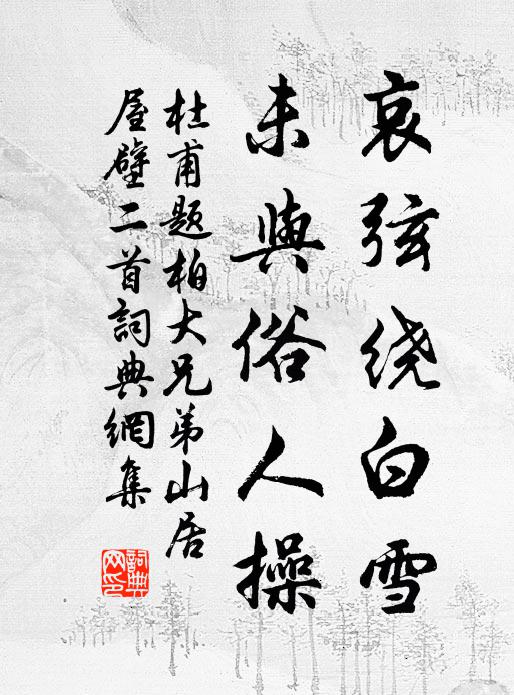 哀弦绕白雪
未與俗人操
杜甫题柏大兄弟山居
屋壁二首詞典網集
詞典网印